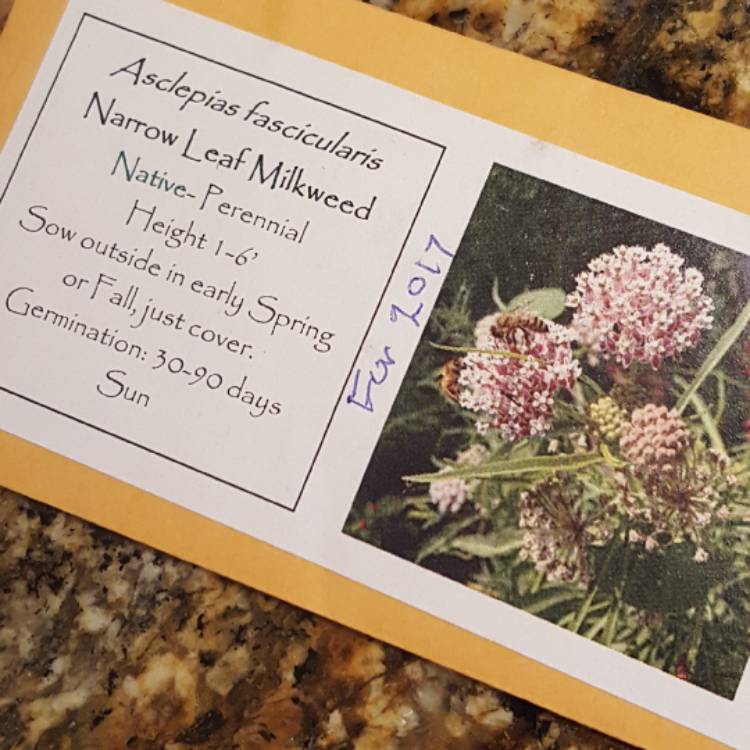 Asclepias fascicularis
Narrow Leaf Milkweed
Native- Perennial
Height 1-6'
Sow outside in early Spring
or Fall, just cover.
Germination: 30-90 days
Sun
For 2017